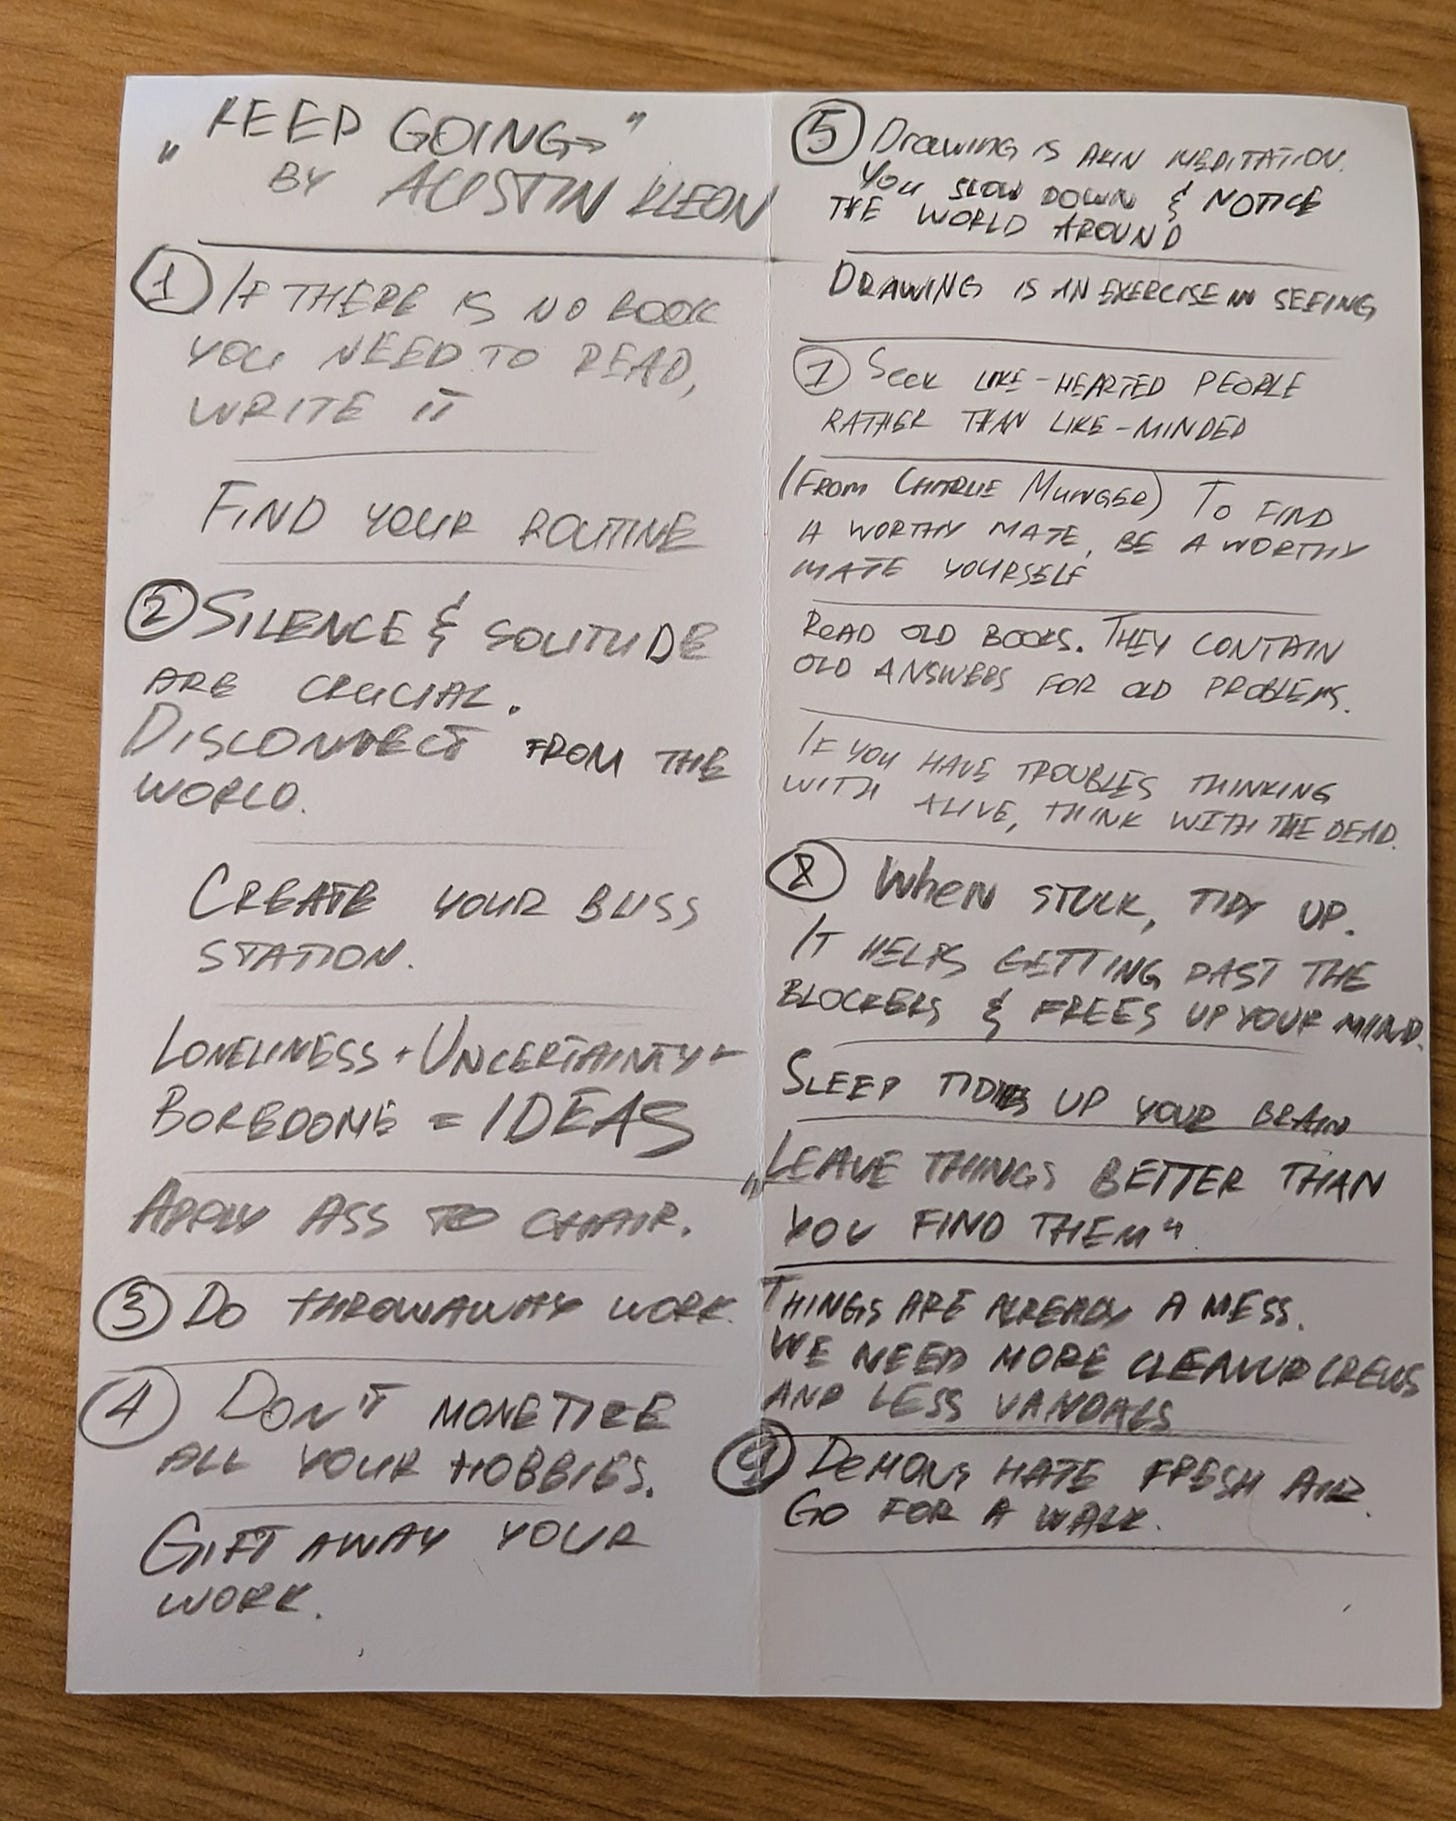 „KEEP GOING"
BY AUSTIN KLEON
① IF THERE IS NO BOOK
YOU NEED TO READ,
WRITE IT
FIND YOUR ROUTINE
② SILENCE & SOLITUDE
ARE CRUCIAL.
DISCONNECT FROM THE
WORLD.
CREATE YOUR BLISS
STATION.
LONELINESS + UNCERTAINTY +
BOREDOME = IDEAS
APPLY ASS TO CHAIR.
③ DO THROWAWAY WORK.
④ DON'T MONETIZE
ALL YOUR HOBBIES.
GIFT AWAY YOUR
WORK.
⑤ Drawing IS AKIN MEDITATION.
YOU SLOW DOWN & NOTICE
THE WORLD AROUND
DRAWING IS AN EXERCISE IN SEEING
⑦ SEEK LIKE-HEARTED PEOPLE
RATHER THAN LIKE-MINDED
(FROM CHARLIE MUNGER) TO FIND
A WORTHY MATE, BE A WORTHY
MATE YOURSELF
READ OLD BOOKS. THEY CONTAIN
OLD ANSWERS FOR OLD PROBLEMS.
IF YOU HAVE TROUBLES THINKING
WITH ALIVE, THINK WITH THE DEAD.
⑧ WHEN STUCK, TIDY UP.
IT HELPS GETTING PAST THE
BLOCKERS & FREES UP YOUR MIND.
SLEEP TIDIES UP YOUR BRAIN
„LEAVE THINGS BETTER THAN
YOU FIND THEM"
THINGS ARE ALREADY A MESS.
WE NEED MORE CLEANUP CREWS
AND LESS VANDALS
⑨ DEMONS HATE FRESH AIR.
GO FOR A WALK.